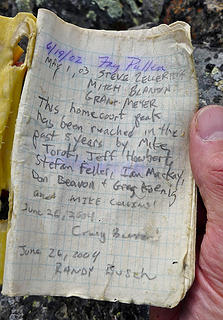 6/19/02 Fay Pullen
MAY 1, 03 STEVE ZELLERHOFF
MITCH BLANTON
GRANT MEYER
This homecourt peak
has been reached in the
past 5 years by Mike
Torok, Jeff Howbert,
Stefan Feller, Ian Mackay,
Don Beavon + Greg Koenig
and MIKE COLLINS!
June 26, 2004
Craig
June 26, 2004
RANDY BUSCH